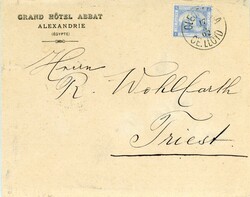 GRAND HÔTEL ABBAT
ALEXANDRIE
(EGYPTE)
Herrn
R. Wohlfarth
Triest.